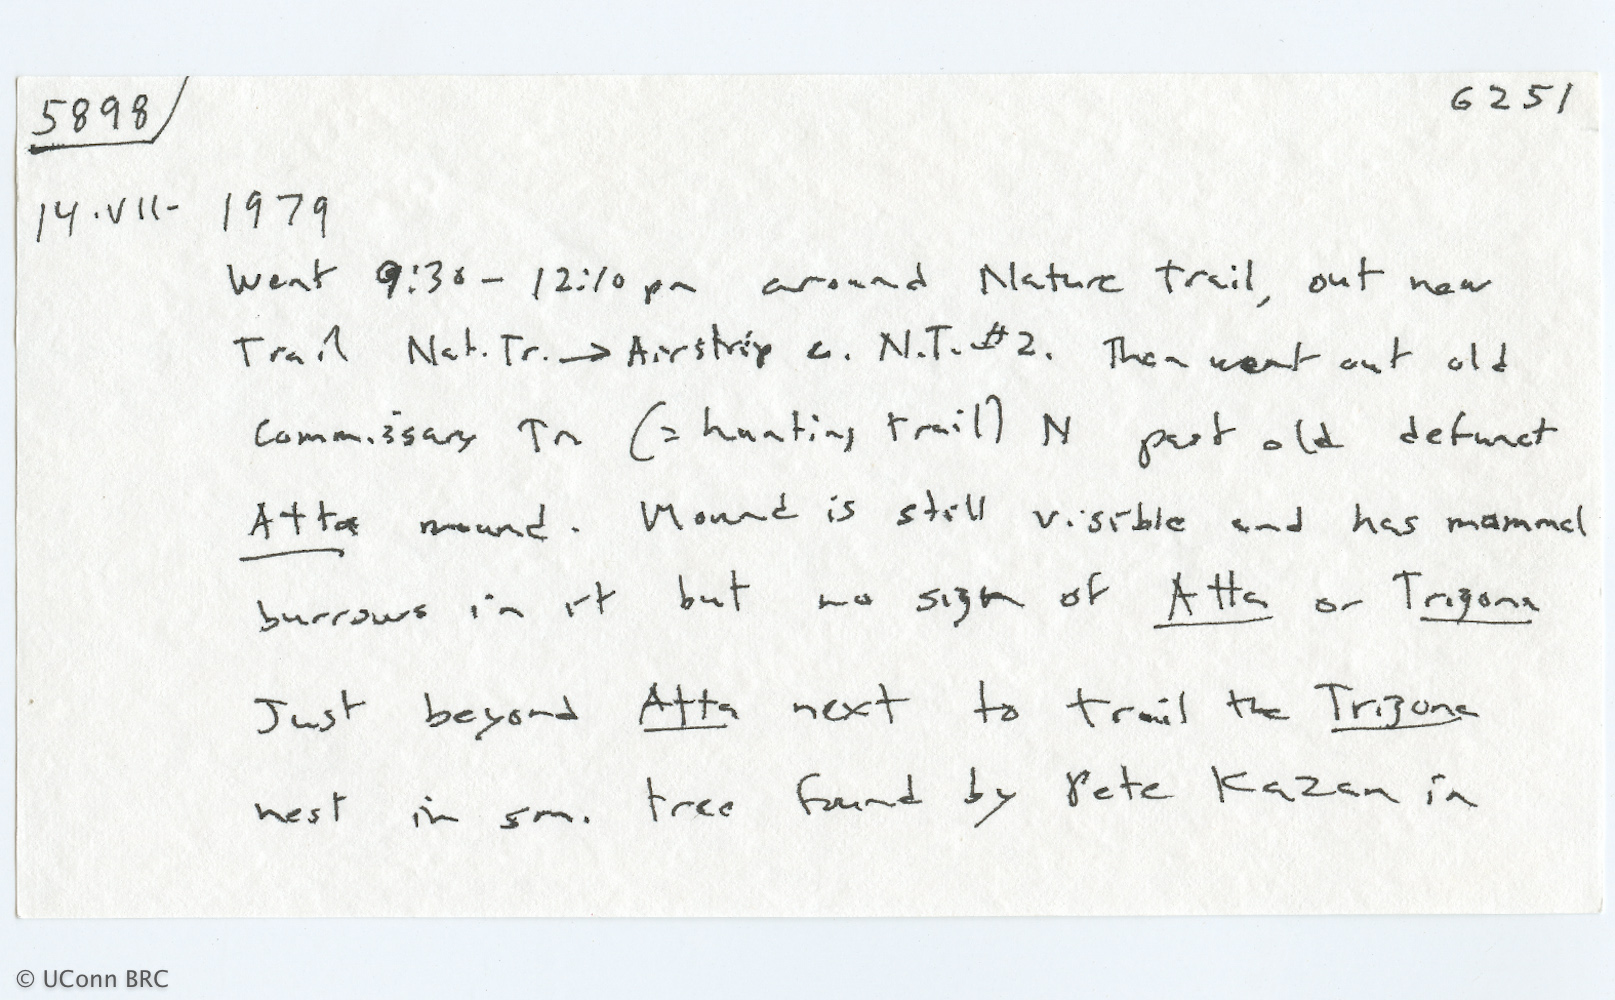 5898 6251
14.VII- 1979
Went 9:30 - 12:10 pm around Nature Trail, out new
Trail Nat. Tr. → Airstrip c. N.T. #2. Then went out old
Commissary Tr (= hunting trail) N past old defunct
Atta mound. Mound is still visible and has mammal
burrows in it but no sign of Atta or Trigona
Just beyond Atta next to trail the Trigona
nest in sm. tree found by Pete Kazan in
© UConn BRC